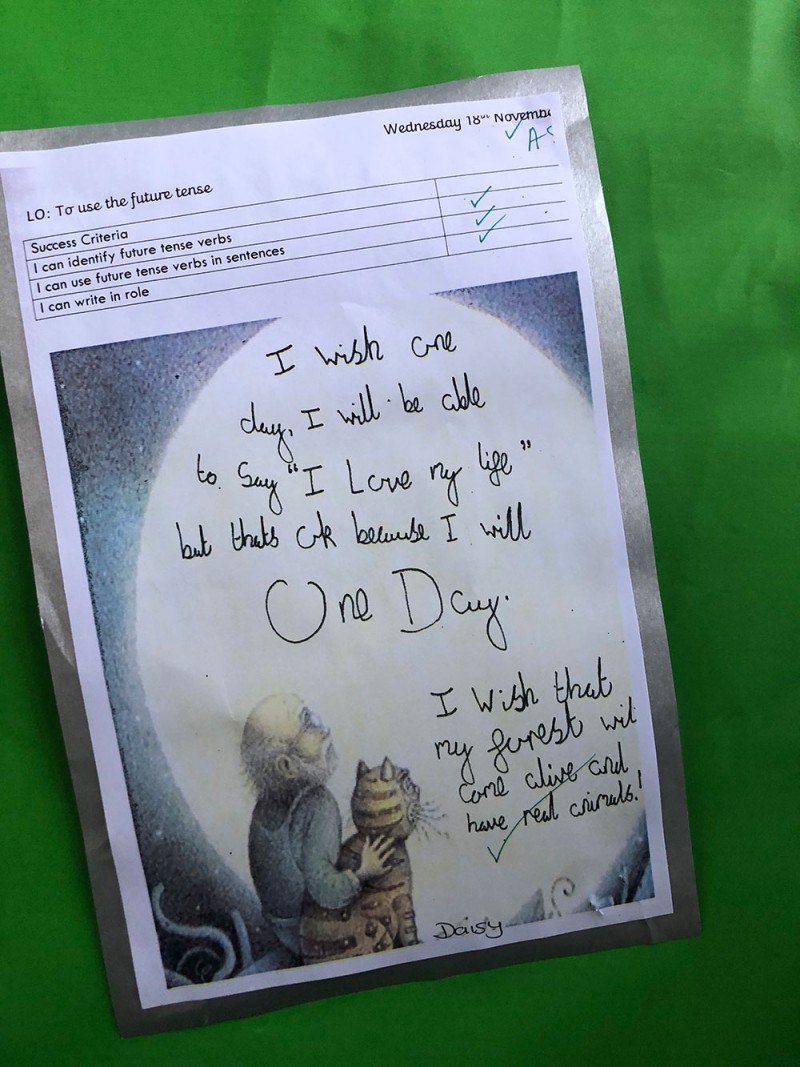 Wednesday 18th Novembe
LO: To use the future tense
Success Criteria
I can identify future tense verbs
I can use future tense verbs in sentences
I can write in role
I wish one
day, I will be able
to say "I Love my life"
but thats ok because I will
One Day.
I wish that
my forest wil
come alive and
have real animals.!
Daisy